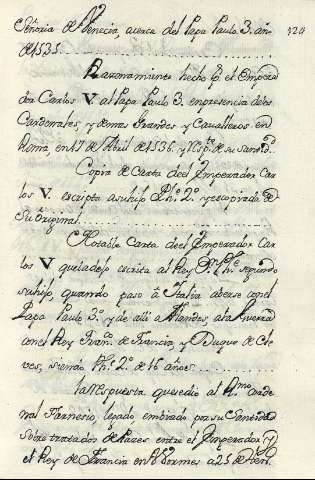 Señoria de Venecia, acerca del Papa Paulo 3. año
de 1535
120
Razonamiento hecho p.r el Empera
dor Carlos V. al Papa Paulo 3. en presencia de los
Cardenales, y demas Grandes y Cavalleros en
Roma en 17 de Abril de 1536, y Resp.ta de su Sant.d
Copia de Carta del Emperador Car
los V. escripta a su hijo Ph.e 2.º y recopirada de
su original
Notable Carta de el Emperador Car
los V que la dejo escrita al Rey D. Ph.e segundo
su hijo, quando paso â Italia a berse con el
Papa Paulo 3.º y de alli a Flandes, a la Guerra
con el Rey Fran.co de Francia, y Duque de Cle
ves, siendo Ph.e 2.º de 16 años
La respuesta que se dio al R.mo Carde
nal Farnesio, legado embiado por su Santidad
sobre tratados de Pazes entre el Emperador y
el Rey de Francia en Vormes a 25 de